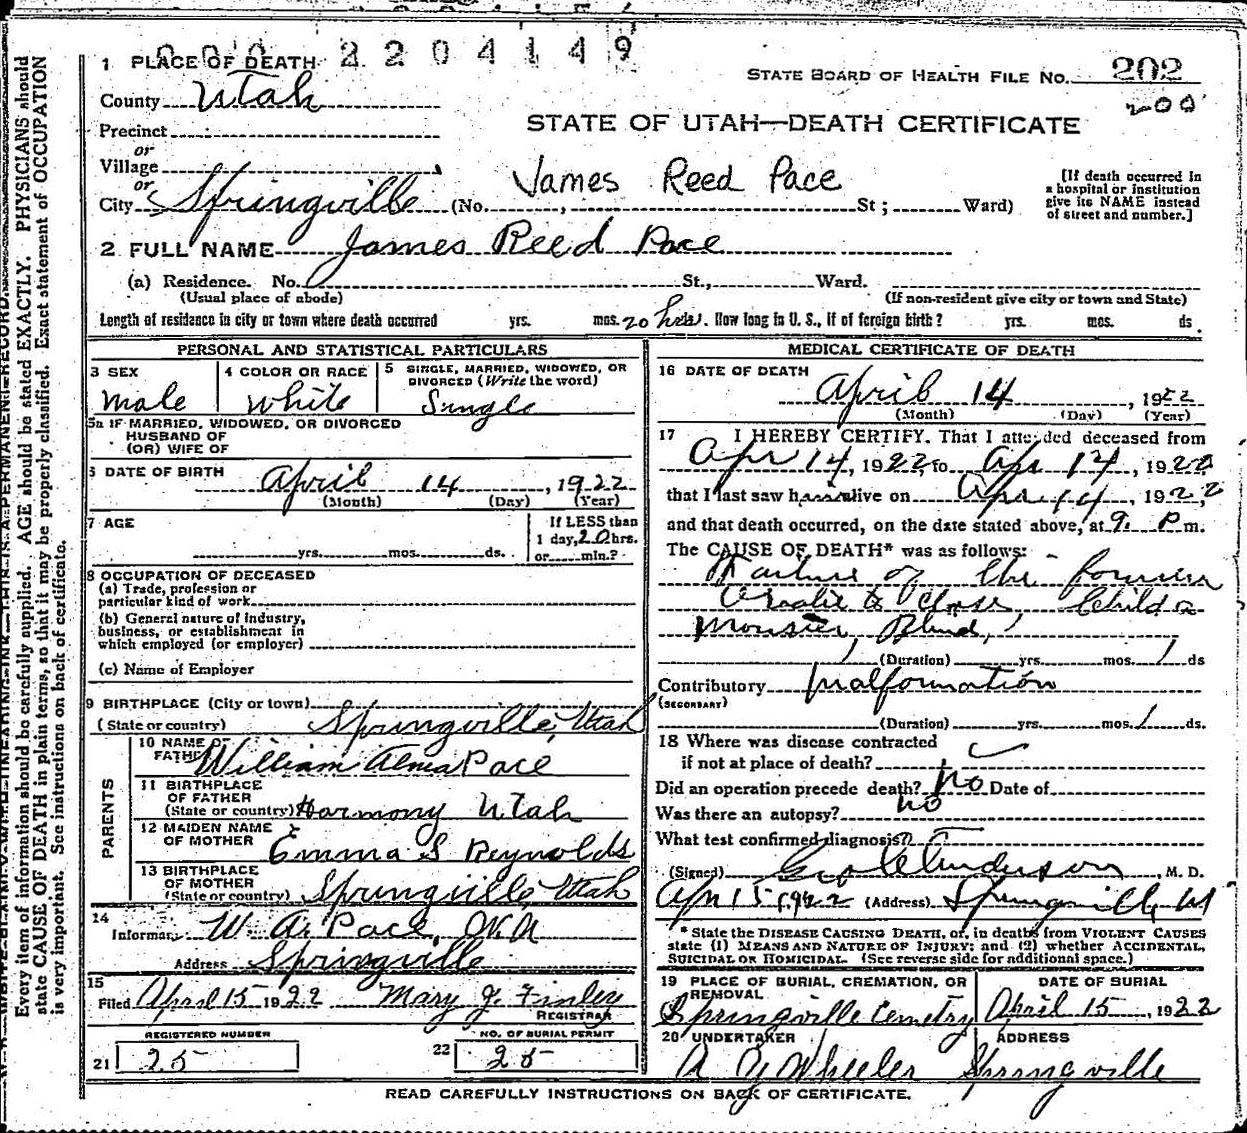 000 2204149
1 PLACE OF DEATH
STATE BOARD OF HEALTH FILE No. 202
County Utah
200
Precinct
STATE OF UTAH—DEATH CERTIFICATE
or
Village
James Reed Pace
or
City Springville (No. , St; Ward)
[If death occurred in
a hospital or institution
give its NAME instead
of street and number.]
2 FULL NAME James Reed Pace
(a) Residence. No. St., Ward.
(Usual place of abode)
(If non-resident give city or town and State)
Length of residence in city or town where death occurred yrs. mos. 20 hrs. How long in U. S., if of foreign birth? yrs. mos. ds.
PERSONAL AND STATISTICAL PARTICULARS
3 SEX
Male
4 COLOR OR RACE
White
5 SINGLE, MARRIED, WIDOWED, OR
DIVORCED (Write the word)
Single
5a IF MARRIED, WIDOWED, OR DIVORCED
HUSBAND OF
(OR) WIFE OF
6 DATE OF BIRTH
April 14, 1922
(Month) (Day) (Year)
7 AGE
yrs. mos. ds.
If LESS than
1 day, 20 hrs.
or min.?
8 OCCUPATION OF DECEASED
(a) Trade, profession or
particular kind of work
(b) General nature of industry,
business, or establishment in
which employed (or employer)
(c) Name of Employer
9 BIRTHPLACE (City or town)
(State or country) Springville, Utah
PARENTS
10 NAME OF
FATHER William Alma Pace
11 BIRTHPLACE
OF FATHER
(State or country) Harmony Utah
12 MAIDEN NAME
OF MOTHER Emma S Reynolds
13 BIRTHPLACE
OF MOTHER
(State or country) Springville, Utah
14
Informant W. A. Pace,
Address Springville
15
Filed April 15 1922 Mary J. Finley
REGISTRAR
REGISTERED NUMBER
21 25
NO. OF BURIAL PERMIT
22 25
MEDICAL CERTIFICATE OF DEATH
16 DATE OF DEATH
April 14, 1922
(Month) (Day) (Year)
17 I HEREBY CERTIFY, That I attended deceased from
Apr 14, 1922 to Apr 14, 1922
that I last saw h alive on Apr. 14, 1922
and that death occurred, on the date stated above, at 9. P m.
The CAUSE OF DEATH* was as follows:
Failure of the
to close, Child a
Monster, Blind,
(Duration) yrs. mos. 1 ds
Contributory Malformation
(SECONDARY)
(Duration) yrs. mos. 1 ds.
18 Where was disease contracted
if not at place of death?
Did an operation precede death? no Date of
Was there an autopsy? no
What test confirmed diagnosis?
(Signed) Anderson, M. D.
Apr 15, 1922 (Address) Springville, Ut
* State the DISEASE CAUSING DEATH, or, in deaths from VIOLENT CAUSES
state (1) MEANS AND NATURE OF INJURY; and (2) whether ACCIDENTAL,
SUICIDAL OR HOMICIDAL. (See reverse side for additional space.)
19 PLACE OF BURIAL, CREMATION, OR
REMOVAL
Springville Cemetry
DATE OF BURIAL
April 15, 1922
20 UNDERTAKER
A Y Wheeler
ADDRESS
Springville
READ CAREFULLY INSTRUCTIONS ON BACK OF CERTIFICATE.
Every item of information should be carefully supplied. AGE should be stated EXACTLY. PHYSICIANS should
state CAUSE OF DEATH in plain terms, so that it may be properly classified. Exact statement of OCCUPATION
is very important. See instructions on back of certificate.